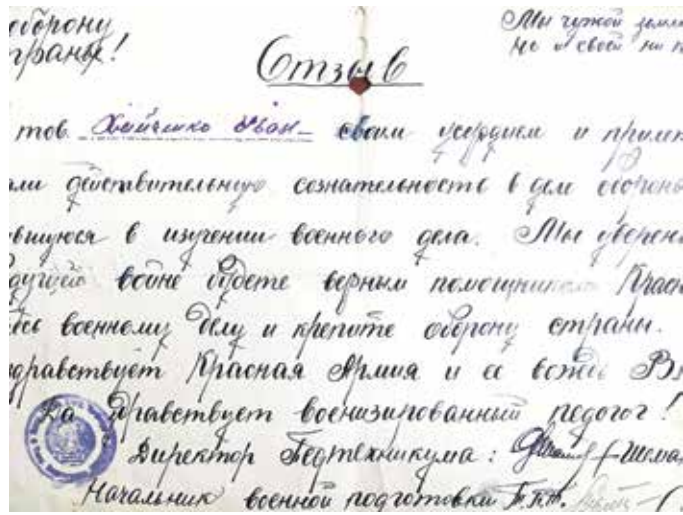 оборону
страны!
Мы чужой земли
но и своей ни п
Отзыв
тов. Иван своим усердием и приле
али действительную сознательность в деле обороны
вшуюся в изучении военного дела. Мы уверены
будущей войне будете верным помощником Красн
есь военному делу и крепите оборону страны.
здравствует Красная Армия и ее вождь В
Да здравствует военизированный педагог!
Директор Педтехникума:
Начальник военной подготовки П.П.Т.